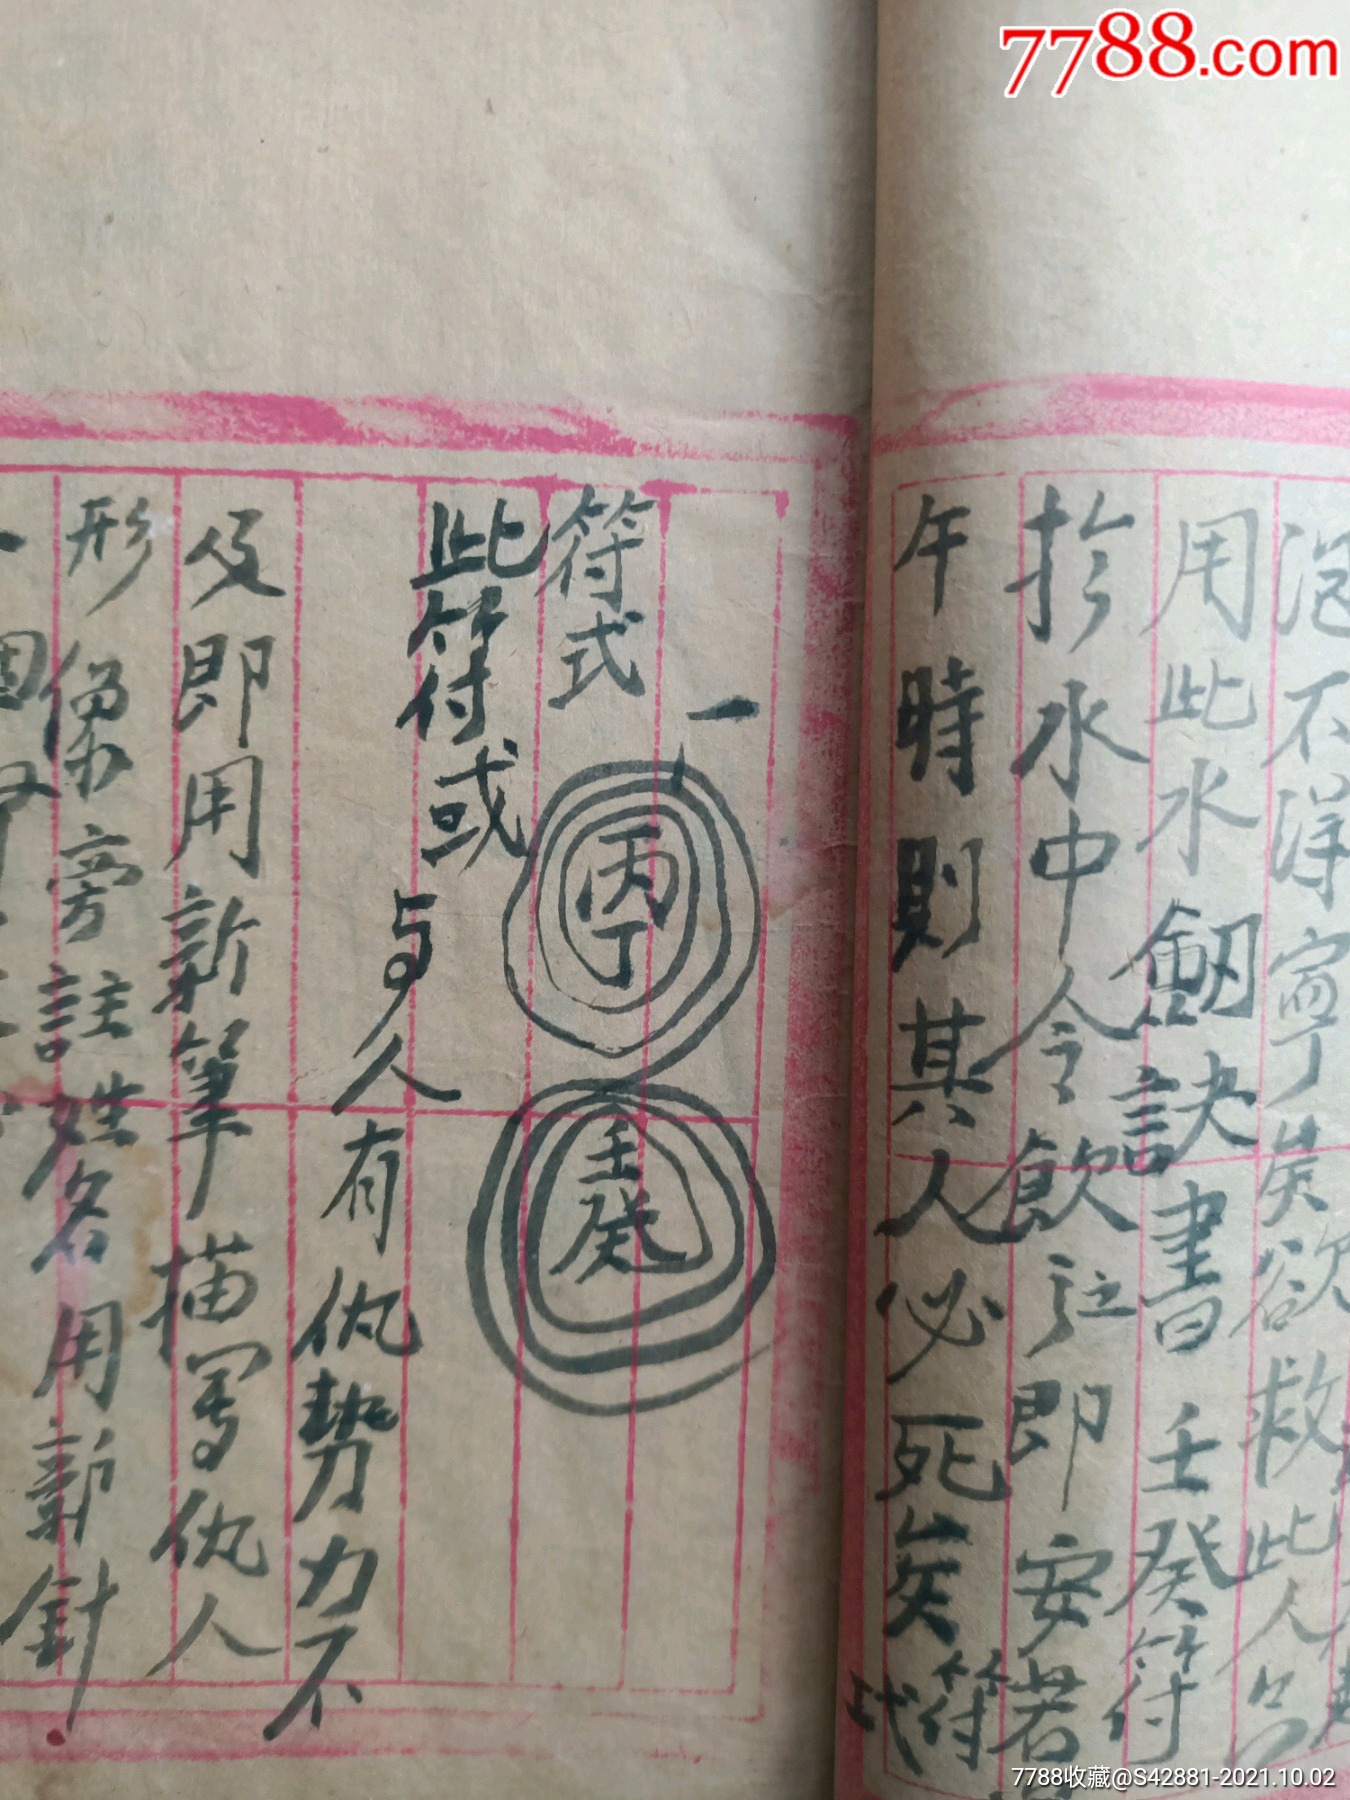 7788.com
泡不洋寧矣欲救此人只
用此水劒訣書壬癸符
於水中令飲之即安若
午時則其人必死矣符式
一
丙丁
壬癸
符式
此符或与人有仇势力不
及即用新筆描写仇人
形像旁註姓名用新針
7788收藏@S42881-2021.10.02